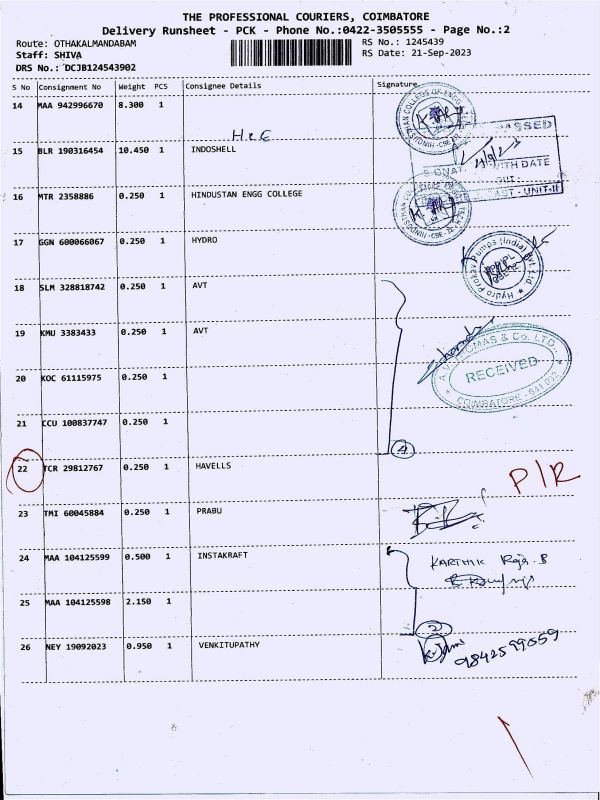 THE PROFESSIONAL COURIERS, COIMBATORE
Delivery Runsheet - PCK - Phone No.:0422-3505555 - Page No.:2
Route: OTHAKALMANDABAM
RS No.: 1245439
Staff: SHIVA
RS Date: 21-Sep-2023
DRS No.: DCJB124543902
S No Consignment No Weight PCS Consignee Details Signature
14 MAA 942996670 8.300 1
H&E
15 BLR 190316454 10.450 1 INDOSHELL
PASSED
WITH DATE
UNIT-II
16 MTR 2358886 0.250 1 HINDUSTAN ENGG COLLEGE
17 GGN 600066067 0.250 1 HYDRO
Hydro Prokav Pumps (India) Pvt. Ltd
18 SLM 328818742 0.250 1 AVT
19 KMU 3383433 0.250 1 AVT
THOMAS & Co. LTD.,
RECEIVED
COIMBATORE - 641 032
20 KOC 61115975 0.250 1
21 CCU 100837747 0.250 1
4
22 TCR 29812767 0.250 1 HAVELLS
P/R
23 TMI 60045884 0.250 1 PRABU
24 MAA 104125599 0.500 1 INSTAKRAFT
KARTHIK Raja. B
25 MAA 104125598 2.150 1
2
26 NEY 19092023 0.950 1 VENKITUPATHY
9842599559